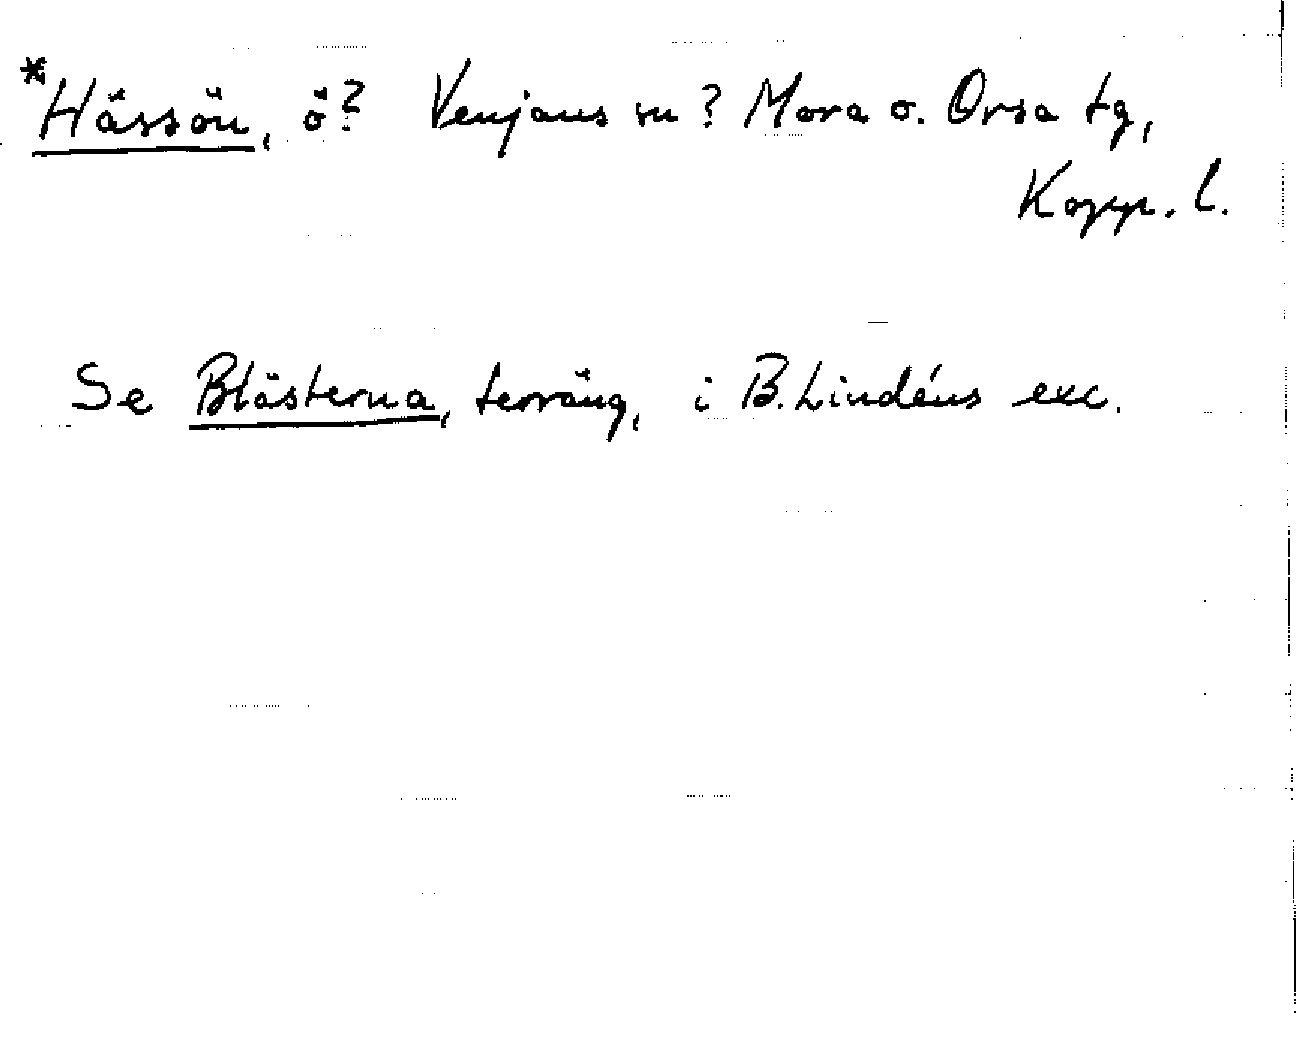 *Hässön, ö? Venjans sn? Mora o. Orsa tg,
Kopp. l.
Se Blästerna, terräng, i B. Lindéns exc.